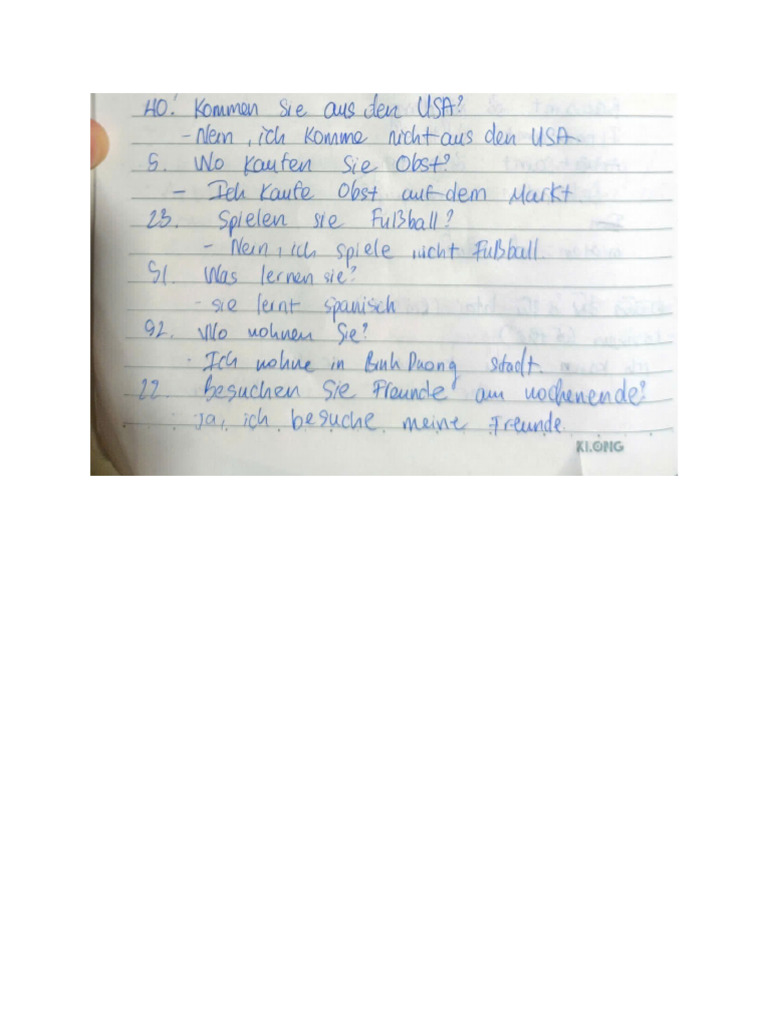 40. Kommen Sie aus den USA?
- Nein, ich komme nicht aus den USA.
5. Wo kaufen Sie Obst?
- Ich kaufe Obst auf dem Markt
23. Spielen sie Fußball?
- Nein, ich spiele nicht Fußball.
51. Was lernen sie?
- sie lernt spanisch
92. Wo wohnen Sie?
- Ich wohne in Binh Duong stadt.
22. Besuchen Sie Freunde am wochenende?
ja, ich besuche meine Freunde.
KLONG